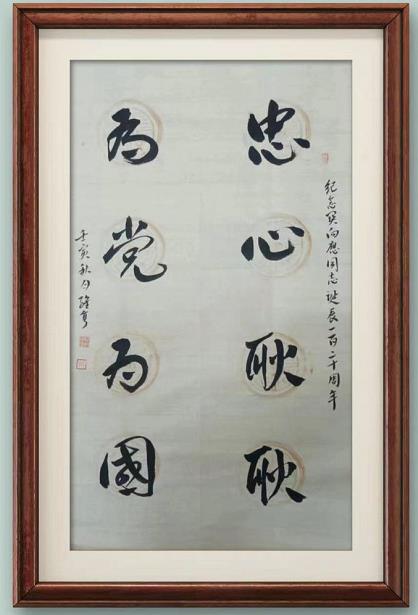 纪念关向应同志诞辰一百二十周年
忠心耿耿
为党为國
壬寅秋月